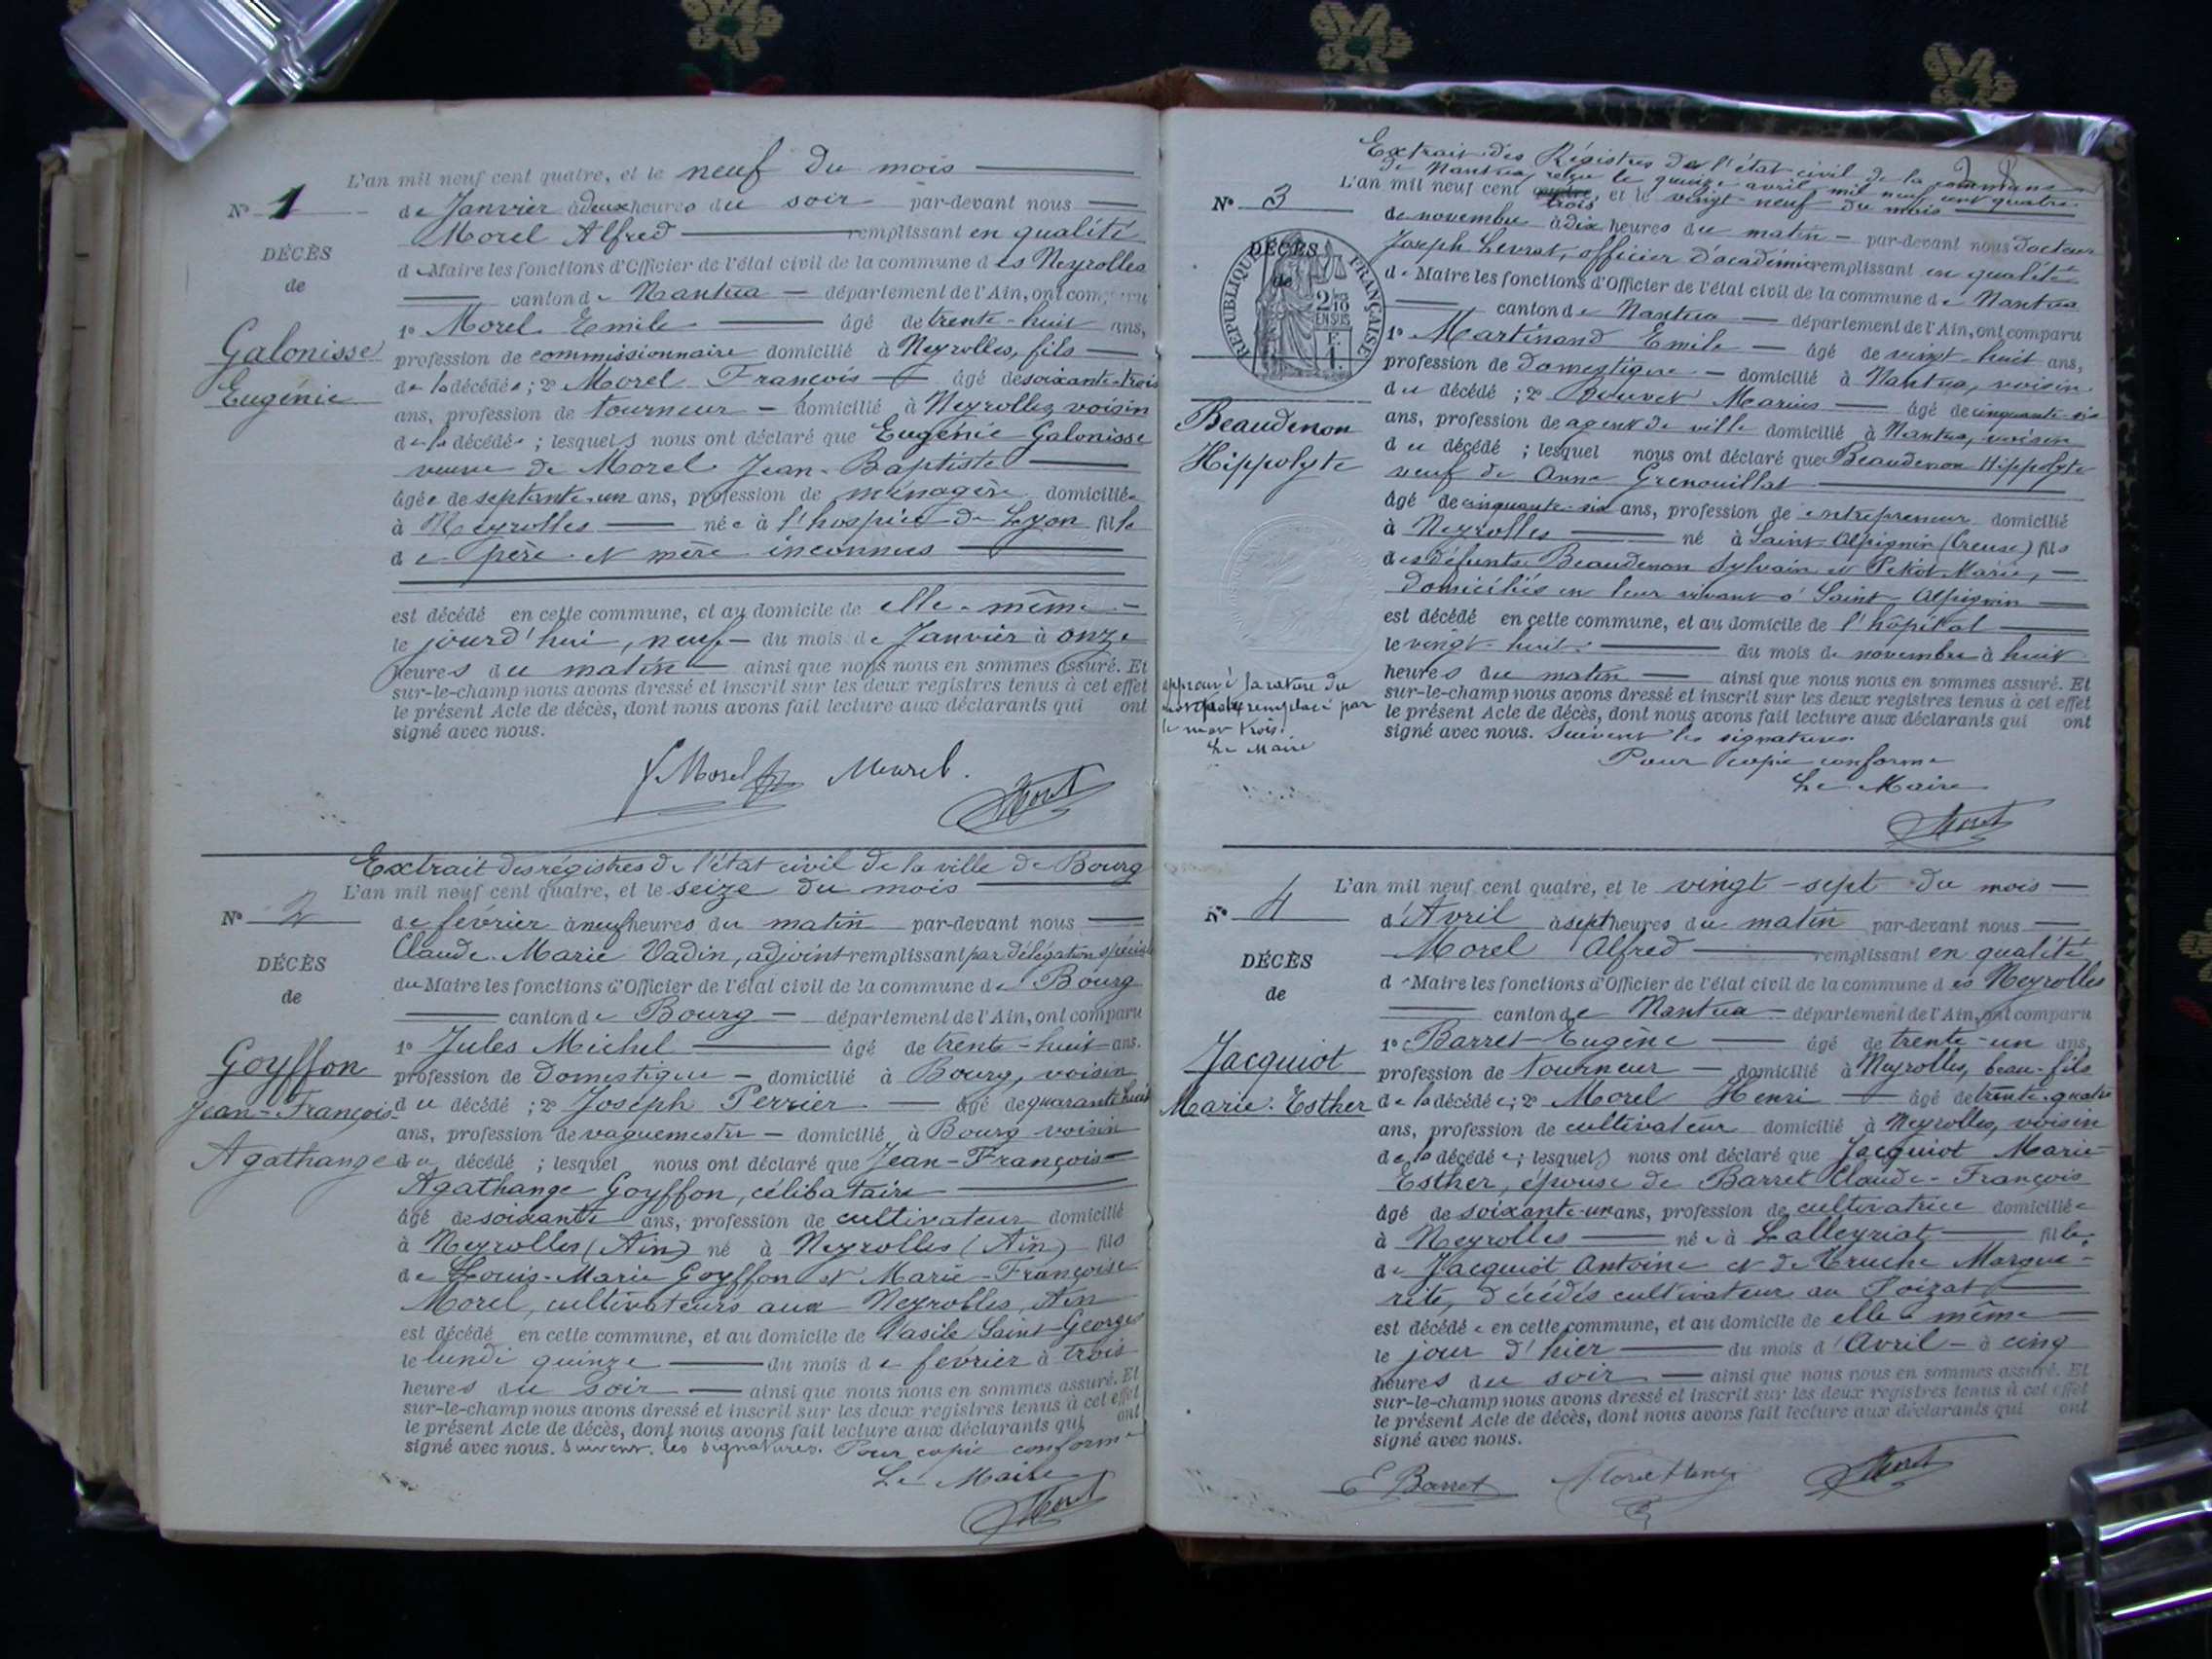 L'an mil neuf cent quatre, et le neuf du mois
N° 1
de Janvier à deux heures du soir par-devant nous
Morel Alfred remplissant en qualité
DÉCÈS
de Maire les fonctions d'Officier de l'état civil de la commune des Neyrolles
de
canton de Nantua département de l'Ain, ont comparu
1° Morel Emile âgé de trente-huit ans,
Galonisse
profession de commissionnaire domicilié à Neyrolles, fils
Eugénie
de la décédée ; 2° Morel François âgé de soixante-trois
ans, profession de tourneur domicilié à Neyrolles voisin
de la décédée ; lesquels nous ont déclaré que Eugénie Galonisse
veuve de Morel Jean-Baptiste
âgée de septante-un ans, profession de ménagère domiciliée
à Neyrolles née à l'hospice de Lyon fille
de père et mère inconnus
est décédé en cette commune, et au domicile de elle-même
le jourd'hui, neuf du mois de Janvier à onze
heures du matin ainsi que nous nous en sommes assuré. Et
sur-le-champ nous avons dressé et inscrit sur les deux registres tenus à cet effet
le présent Acte de décès, dont nous avons fait lecture aux déclarants qui ont
signé avec nous.
Morel
Extrait des régistres de l'état civil de la ville de Bourg
L'an mil neuf cent quatre, et le seize du mois
N° 2
de février à neuf heures du matin par-devant nous
Claude-Marie Vadin, adjoint remplissant par délégation spéciale
DÉCÈS
du Maire les fonctions d'Officier de l'état civil de la commune de Bourg
de
canton de Bourg département de l'Ain, ont comparu
1° Jules Michel âgé de trente-huit ans.
Goyffon
profession de Domestique domicilié à Bourg, voisin
Jean-François
du décédé ; 2° Joseph Perrier âgé de quarante huit
ans, profession de vaguemestre domicilié à Bourg voisin
Agathange
du décédé ; lesquel nous ont déclaré que Jean-François
Agathange Goyffon, célibataire
âgé de soixante ans, profession de cultivateur domicilié
à Neyrolles (Ain) né à Neyrolles (Ain) fils
de Louis-Marie Goyffon et Marie-Françoise
Morel, cultivateurs aux Neyrolles, Ain
est décédé en cette commune, et au domicile de l'asile Saint-Georges
le lundi quinze du mois de février à trois
heures du soir ainsi que nous nous en sommes assuré. Et
sur-le-champ nous avons dressé et inscrit sur les deux registres tenus à cet effet
le présent Acte de décès, dont nous avons fait lecture aux déclarants qui ont
signé avec nous. Suivent les signatures. Pour copie conforme
Le Maire
Extrait des Régistres de l'état civil de la commune
de Nantua, reçu le quinze avril mil neuf cent quatre
L'an mil neuf cent quatre, et le vingt-neuf du mois
trois
N° 3
de novembre à dix heures du matin par-devant nous Docteur
Joseph Levrat, officier d'académie remplissant en qualité
DÉCÈS
de Maire les fonctions d'Officier de l'état civil de la commune de Nantua
de
RÉPUBLIQUE FRANÇAISE
2/10
EN SUS
1 F.
canton de Nantua département de l'Ain, ont comparu
1° Martinand Emile âgé de vingt-huit ans,
profession de Domestique domicilié à Nantua, voisin
Beaudenon
du décédé ; 2° Marius âgé de cinquante-six
Hippolyte
ans, profession de agent de ville domicilié à Nantua, voisin
du décédé ; lesquel nous ont déclaré que Beaudenon Hippolyte
veuf de Anna Grenouillat
âgé de cinquante-six ans, profession de entrepreneur domicilié
à Neyrolles né à Saint-Alpinien (Creuse) fils
des défunts Beaudenon Sylvain et Marie,
domiciliés en leur vivant à Saint-Alpinien
est décédé en cette commune, et au domicile de l'hôpital
le vingt-huit du mois de novembre à huit
heures du matin ainsi que nous nous en sommes assuré. Et
sur-le-champ nous avons dressé et inscrit sur les deux registres tenus à cet effet
le présent Acte de décès, dont nous avons fait lecture aux déclarants qui ont
signé avec nous. Suivent les signatures
approuvé la rature du
mot quatre remplacé par
le mot trois.
Le Maire
Pour copie conforme
Le Maire
L'an mil neuf cent quatre, et le vingt-sept du mois
N° 4
d'Avril à sept heures du matin par-devant nous
Morel Alfred remplissant en qualité
DÉCÈS
de Maire les fonctions d'Officier de l'état civil de la commune des Neyrolles
de
canton de Nantua département de l'Ain, ont comparu
1° Barret Eugène âgé de trente-un ans,
Jacquiot
profession de tourneur domicilié à Neyrolles, beau-fils
Marie-Esther
de la décédée ; 2° Morel Henri âgé de trente-quatre
ans, profession de cultivateur domicilié à Neyrolles, voisin
de la décédée ; lesquels nous ont déclaré que Jacquiot Marie-
Esther, épouse de Barret Claude-François
âgé de soixante-un ans, profession de cultivatrice domiciliée
à Neyrolles née à Lalleyriat fille
de Jacquiot Antoine et de Truche Margue-
rite, décédés cultivateur au Poizat
est décédée en cette commune, et au domicile de elle-même
le jour d'hier du mois d'Avril à cinq
heures du soir ainsi que nous nous en sommes assuré. Et
sur-le-champ nous avons dressé et inscrit sur les deux registres tenus à cet effet
le présent Acte de décès, dont nous avons fait lecture aux déclarants qui ont
signé avec nous.
E Barret Morel Henri